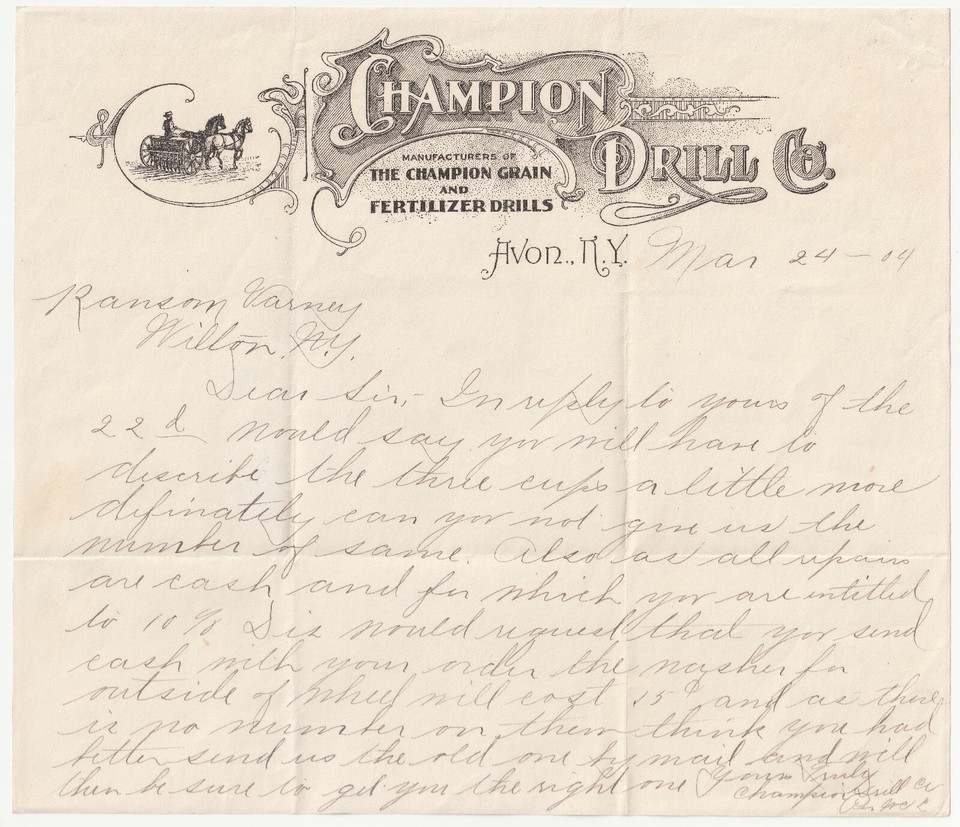 CHAMPION
DRILL Co.
MANUFACTURERS OF
THE CHAMPION GRAIN
AND
FERTILIZER DRILLS
AVON., N.Y. Mar 24 - 04
Ransom Varney
Wilton. N.Y.
Dear Sir,- In reply to yours of the
22d would say you will have to
describe the three cups a little more
definately can you not give us the
number of same. Also as all repairs
are cash and for which you are intitled
to 10% Dis would request that you send
cash with your order the washer for
outside of wheel will cost 15¢ and as there
is no number on them think you had
better send us the old one by mail and will
then be sure to get you the right one Yours Truly
Champion Drill Co